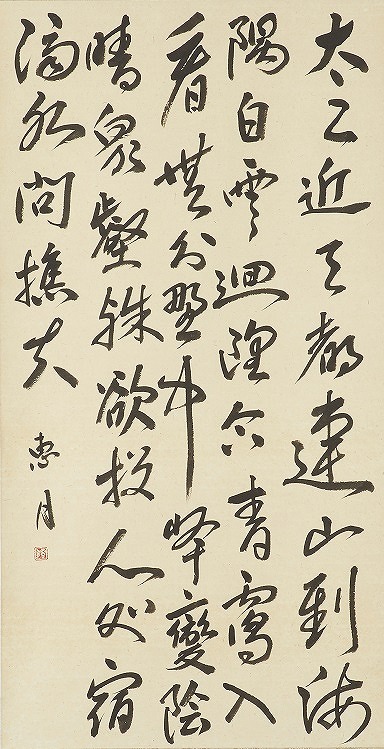 太乙近天都連山到海
隅白雲迴望合青靄入
看無分野中峰變陰
晴衆壑殊欲投人處宿
隔水問樵夫
惠月